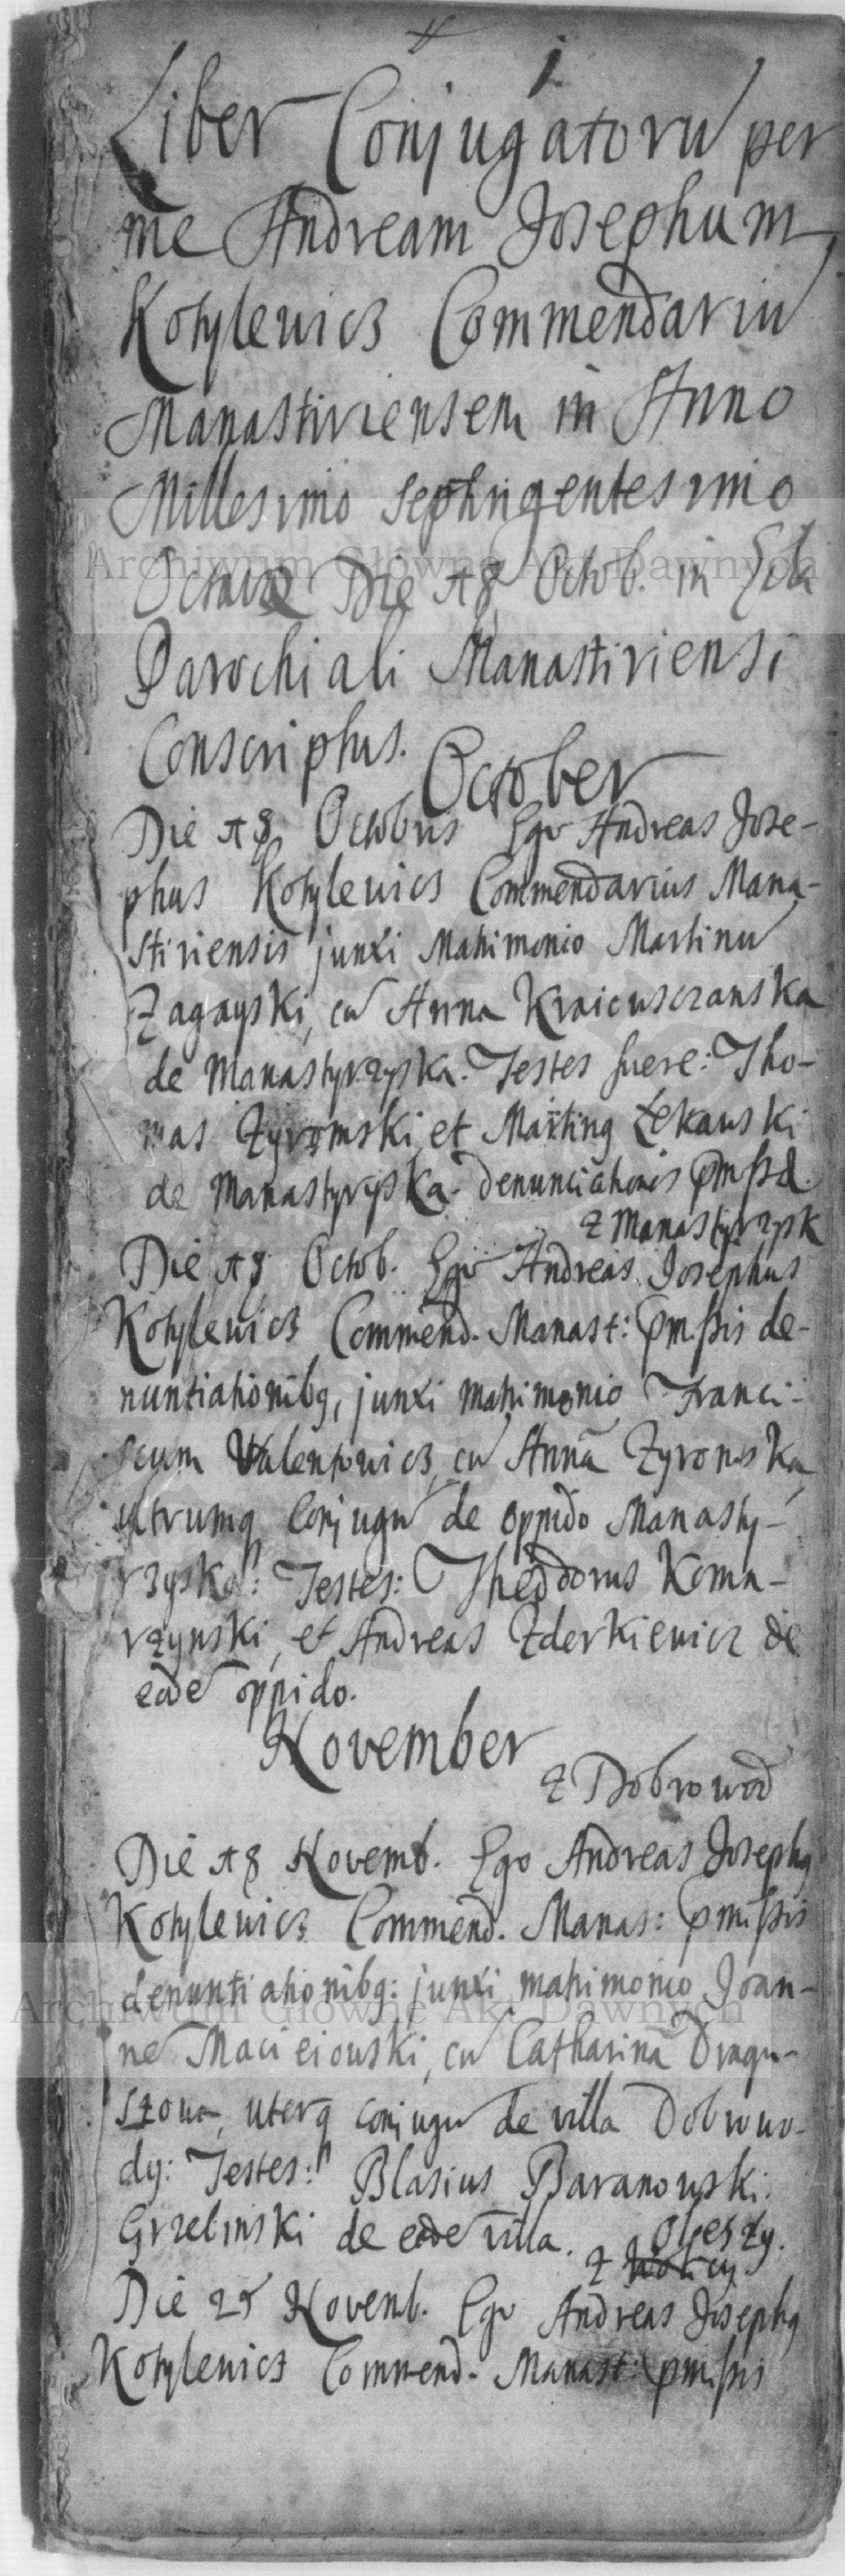 1.
Liber Conjugatorũ per
me Andream Josephum
Kotylewicz Commendariũ
Manastiriensem in Anno
Millesimo Septingentesimo
Octavo Die 18 Octob. in Ecla
Parochiali Manastiriensi
Conscriptus.
October
Die 18 Octobris Ego Andreas Jose-
phus Kotylewics Commendarius Mana-
stiriensis junxi Matrimonio Martinũ
Zagayski, cũ Anna
de Manastyrzyska. Testes fuere: Tho-
mas Zyromski et Marting Lekawski
de Manastyrzyska. Denunciationis pmssa.
z Manastyrzysk
Die 18 Octob. Ego Andreas Josephus
Kotylewicz Commend. Manast: pmssis de-
nuntiationibg, junxi matrimonio Franci-
scum Valentowicz, cũ Annã Zyromska
utrumq Conjugũ de oppido Manasty-
rzyska: Testes: Theodorus Koma-
rzynski, et Andreas Zderkiewicz de
eode oppido.
November
z Dobrowod
Die 18 Novemb. Ego Andreas Josephg
Kotylewicz Commend. Manas: pmissis
denuntiationibg: junxi matrimonio Joan-
ne Macieiowski, cũ Catharinã Dragu-
szowa, uterq conjugũ de villa Dobrowo-
dy: Testes: Blasius Baranowski.
Grzelinski de eade villa.
Oleszy.
z
Die 25 Novemb. Ego Andreas Josephg
Kotylewicz Commend. Manast: pmissis
Archiwum Główne Akt Dawnych
Archiwum Główne Akt Dawnych